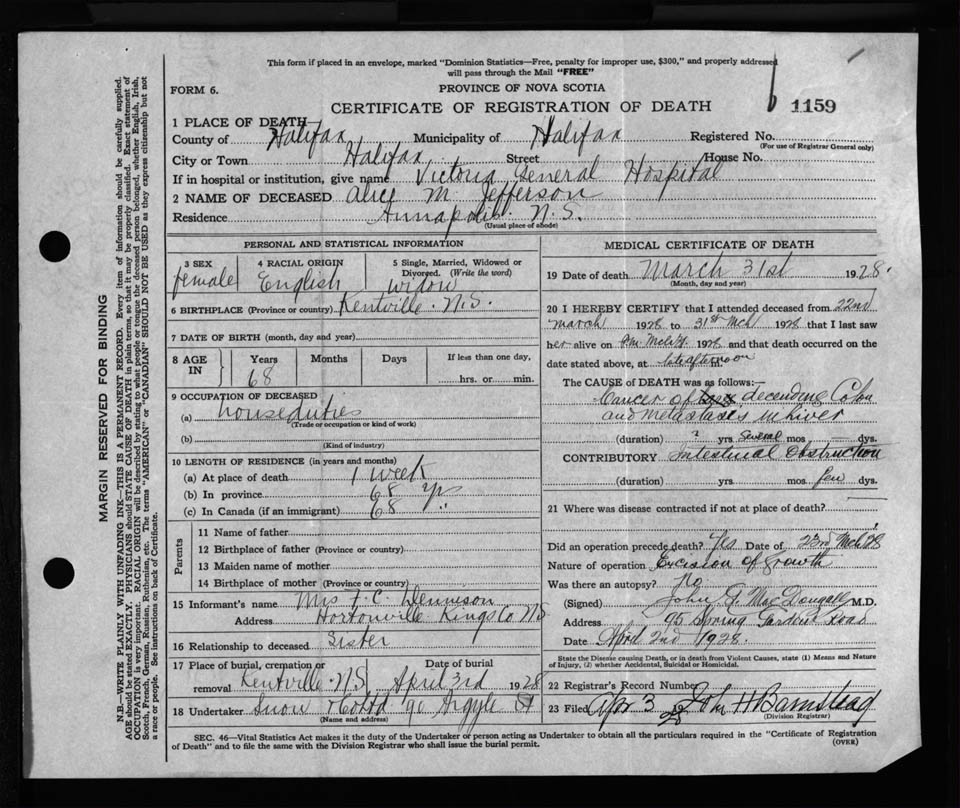 This form if placed in an envelope, marked "Dominion Statistics—Free, penalty for improper use, $300," and properly addressed
will pass through the Mail "FREE"
FORM 6.
PROVINCE OF NOVA SCOTIA
CERTIFICATE OF REGISTRATION OF DEATH
1159
1 PLACE OF DEATH
County of Halifax Municipality of Halifax Registered No.
(For use of Registrar General only)
City or Town Halifax Street House No.
If in hospital or institution, give name Victoria General Hospital
2 NAME OF DECEASED Alice M. Jefferson
Residence Annapolis. N.S.
(Usual place of abode)
PERSONAL AND STATISTICAL INFORMATION
3 SEX
female
4 RACIAL ORIGIN
English
5 Single, Married, Widowed or
Divorced. (Write the word)
widow
6 BIRTHPLACE (Province or country) Kentville. N.S.
7 DATE OF BIRTH (month, day and year)
8 AGE IN Years Months Days If less than one day,
68 hrs. or min.
9 OCCUPATION OF DECEASED
(a) houseduties
(Trade or occupation or kind of work)
(b)
(Kind of industry)
10 LENGTH OF RESIDENCE (in years and months)
(a) At place of death 1 week
(b) In province 68 yrs
(c) In Canada (if an immigrant) 68
Parents
11 Name of father
12 Birthplace of father (Province or country)
13 Maiden name of mother
14 Birthplace of mother (Province or country)
15 Informant's name Mrs F. C. Dennison
Address Hortonville Kings Co. NS
16 Relationship to deceased Sister
17 Place of burial, cremation or removal Kentville. NS
Date of burial April 3rd 1928
18 Undertaker Snow & Co Ltd 90 Argyle St
(Name and address)
MEDICAL CERTIFICATE OF DEATH
19 Date of death March 31st 1928.
(Month, day and year)
20 I HEREBY CERTIFY that I attended deceased from 22nd
march 1928 to 31st Mch 1928 that I last saw
her alive on 1928 and that death occurred on the
date stated above, at late afternoon m.
The CAUSE of DEATH was as follows:—
Cancer of decending Colon
and metastases in liver
(duration) ? yrs. several mos. — dys.
CONTRIBUTORY Intestinal Obstruction
(duration) yrs. mos. few dys.
21 Where was disease contracted if not at place of death?
Did an operation precede death? Yes Date of 23rd Mch 28
Nature of operation Excision of growth
Was there an autopsy? No
(Signed) John G. MacDougall M.D.
Address 95 Spring Garden Road
Date April 2nd 1928.
State the Disease causing Death, or in death from Violent Causes, state (1) Means and Nature
of Injury, (2) whether Accidental, Suicidal or Homicidal.
22 Registrar's Record Number
23 Filed Apr 3 1928 John H Barnstead
(Division Registrar)
SEC. 46—Vital Statistics Act makes it the duty of the Undertaker or person acting as Undertaker to obtain all the particulars required in the "Certificate of Registration
of Death" and to file the same with the Division Registrar who shall issue the burial permit.
(OVER)
MARGIN RESERVED FOR BINDING
N.B.—WRITE PLAINLY WITH UNFADING INK—THIS IS A PERMANENT RECORD. Every item of information should be carefully supplied.
AGE should be stated EXACTLY. PHYSICIANS should STATE CAUSE OF DEATH in plain terms, so that it may be properly classified. Exact statement of
OCCUPATION is very important. RACIAL ORIGIN will be described by stating to what people or tongue the deceased person belonged, whether English, Irish,
Scotch, French, German, Russian, Ruthenian, etc. The terms "AMERICAN" or "CANADIAN" SHOULD NOT BE USED as they express citizenship but not
a race or people. See instructions on back of Certificate.